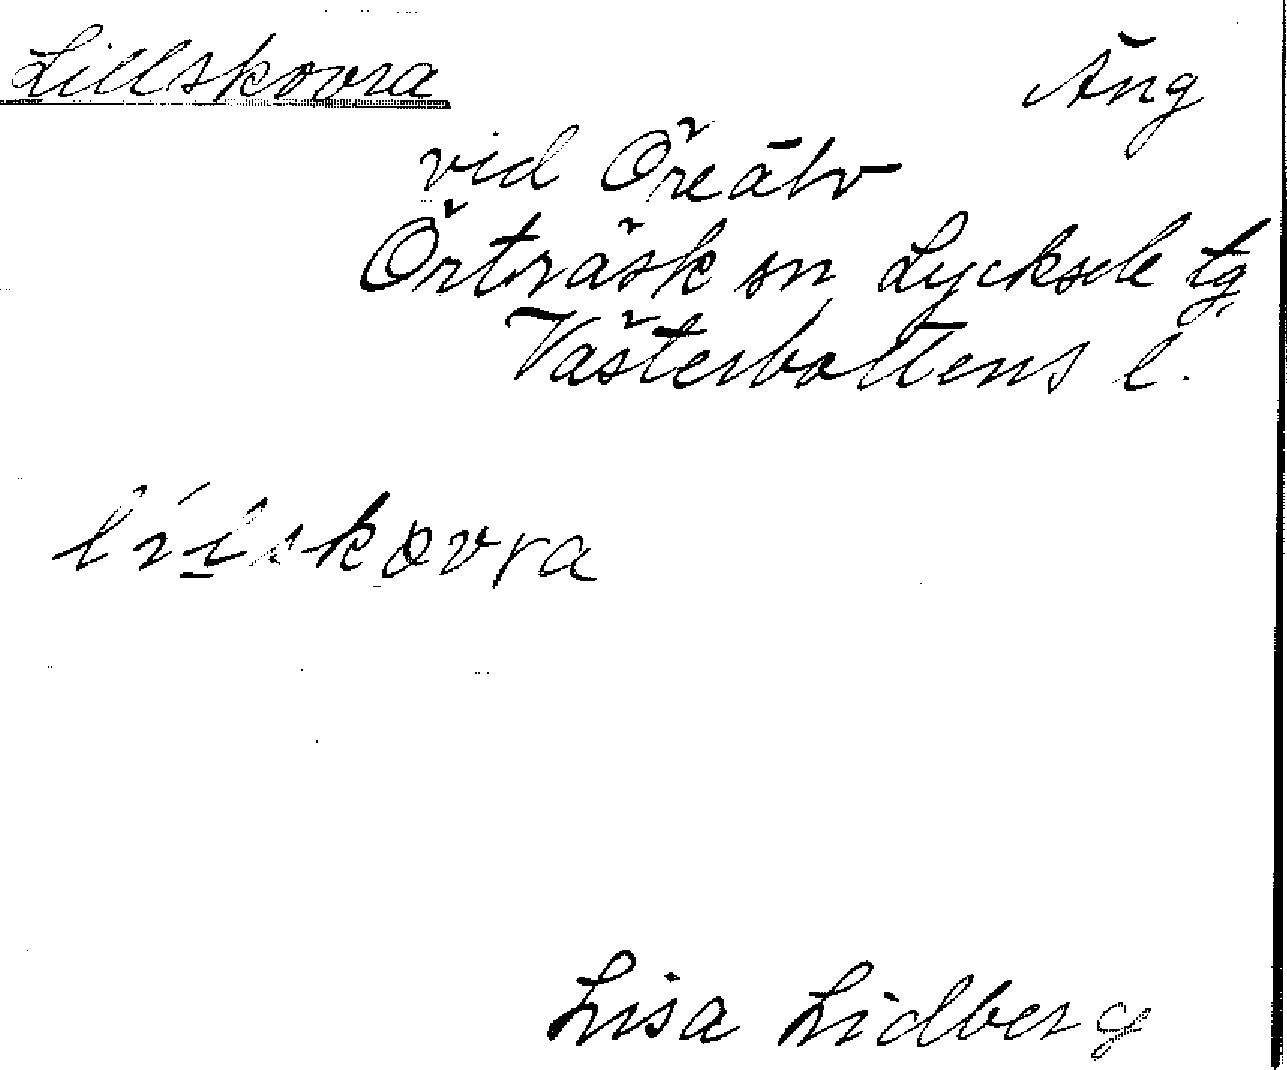 Lillskovra Äng
vid Öreälv
Örträsk sn Lycksele tg
Västerbottens l.
lílskovra
Lisa Lidberg